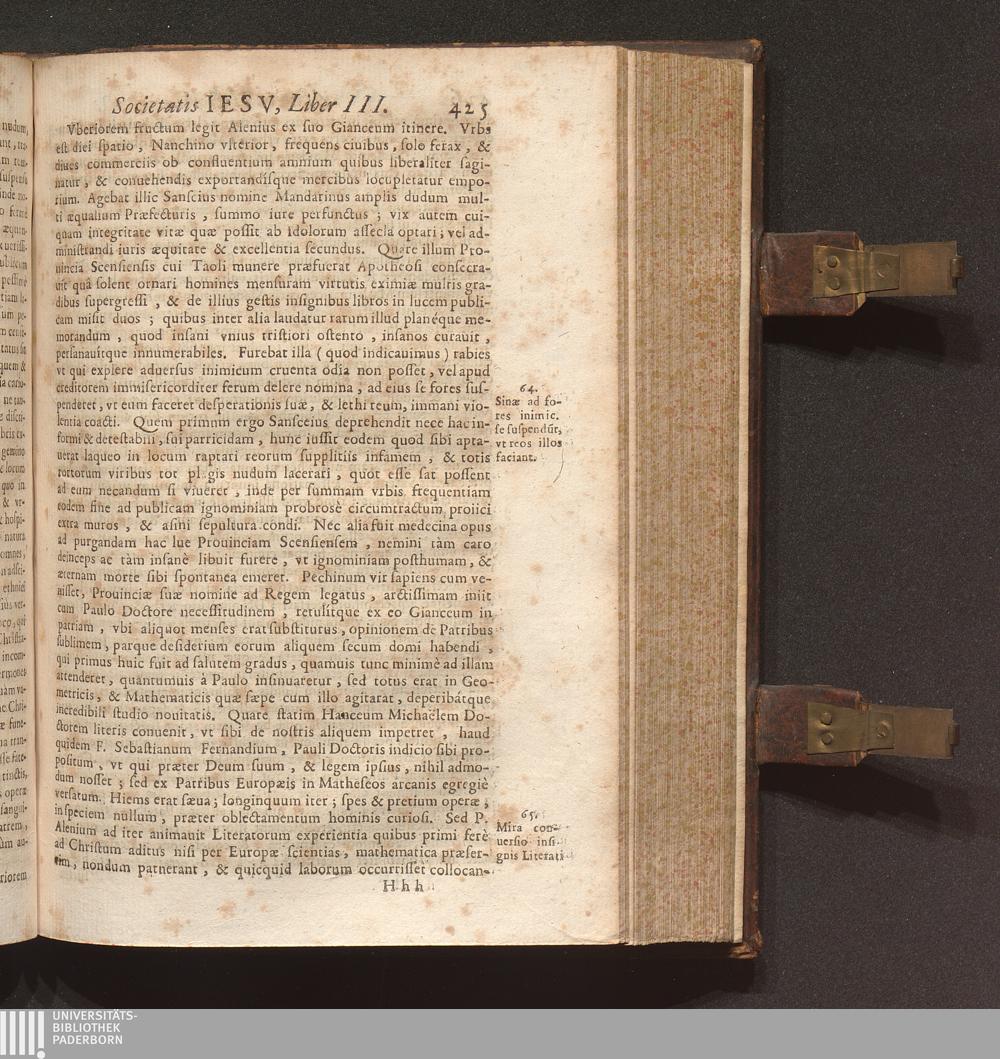 Societatis IESV, Liber III. 425
Vberiorem fructum legit Alenius ex suo Gianceum itinere. Vrbs
est diei spatio, Nanchino vlterior, frequens ciuibus, solo ferax, &
diues commerciis ob confluentium amnium quibus liberaliter sagi-
natur, & conuehendis exportandisque mercibus locupletatur empo-
rium. Agebat illic Sanscius nomine Mandarinus amplis dudum mul-
ti æqualium Præfecturis, summo iure perfunctus; vix autem cui-
quam integritate vitæ quæ possit ab Idolorum assecla optari; vel ad-
ministrandi iuris æquitate & excellentia secundus. Quare illum Pro-
uincia Scensiensis cui Taoli munere præfuerat Apotheosi consecra-
uit quâ solent ornari homines mensuram virtutis eximiæ multis gra-
dibus supergressi, & de illius gestis insignibus libros in lucem publi-
cam misit duos; quibus inter alia laudatur rarum illud planéque me-
morandum, quod insani vnius tristiori ostento, insanos curauit,
persanauitque innumerabiles. Furebat illa (quod indicauimus) rabies
vt qui explere aduersus inimicum cruenta odia non posset, vel apud
creditorem immisericorditer ferum delere nomina, ad eius se fores sus-
penderet, vt eum faceret desperationis suæ, & lethi reum, immani vio-
lentia coacti. Quem primum ergo Sansceius deprehendit nece hac in-
formi & detestabili, sui parricidam, hunc iussit eodem quod sibi apta-
uerat laqueo in locum raptari reorum supplitiis infamem, & totis
tortorum viribus tot plagis nudum lacerari, quot esse sat possent
ad eum necandum si viueret, inde per summam vrbis frequentiam
eodem fine ad publicam ignominiam probrosè circumtractum proiici
extra muros, & asini sepultura condi. Nec alia fuit medecina opus
ad purgandam hac lue Prouinciam Scensiensem, nemini tàm caro
deinceps ac tàm insanè libuit furere, vt ignominiam posthumam, &
æternam morte sibi spontanea emeret. Pechinum vir sapiens cum ve-
nisset, Prouinciæ suæ nomine ad Regem legatus, arctissimam iniit
cum Paulo Doctore necessitudinem, retulitque ex eo Gianceum in
patriam, vbi aliquot menses erat substiturus, opinionem de Patribus
sublimem, parque desiderium eorum aliquem secum domi habendi,
qui primus huic fuit ad salutem gradus, quamuis tunc minimè ad illam
attenderet, quantumuis à Paulo insinuaretur, sed totus erat in Geo-
metricis, & Mathematicis quæ sæpe cum illo agitarat, deperibátque
incredibili studio nouitatis. Quare statim Hanceum Michaëlem Do-
ctorem literis conuenit, vt sibi de nostris aliquem impetret, haud
quidem F. Sebastianum Fernandium, Pauli Doctoris indicio sibi pro-
positum, vt qui præter Deum suum, & legem ipsius, nihil admo-
dum nosset; sed ex Patribus Europæis in Matheseos arcanis egregiè
versatum. Hiems erat sæua; longinquum iter; spes & pretium operæ,
in speciem nullum, præter oblectamentum hominis curiosi. Sed P.
Alenium ad iter animauit Literatorum experientia quibus primi ferè
ad Christum aditus nisi per Europæ scientias, mathematica præser-
tim, nondum patuerant, & quicquid laborum occurrisset collocan-
Hhh
64.
Sinæ ad fo-
res inimic.
se suspendũt,
vt reos illos
faciant.
65.
Mira con-
uersio insi-
gnis Literati
UNIVERSITÄTS-
BIBLIOTHEK
PADERBORN